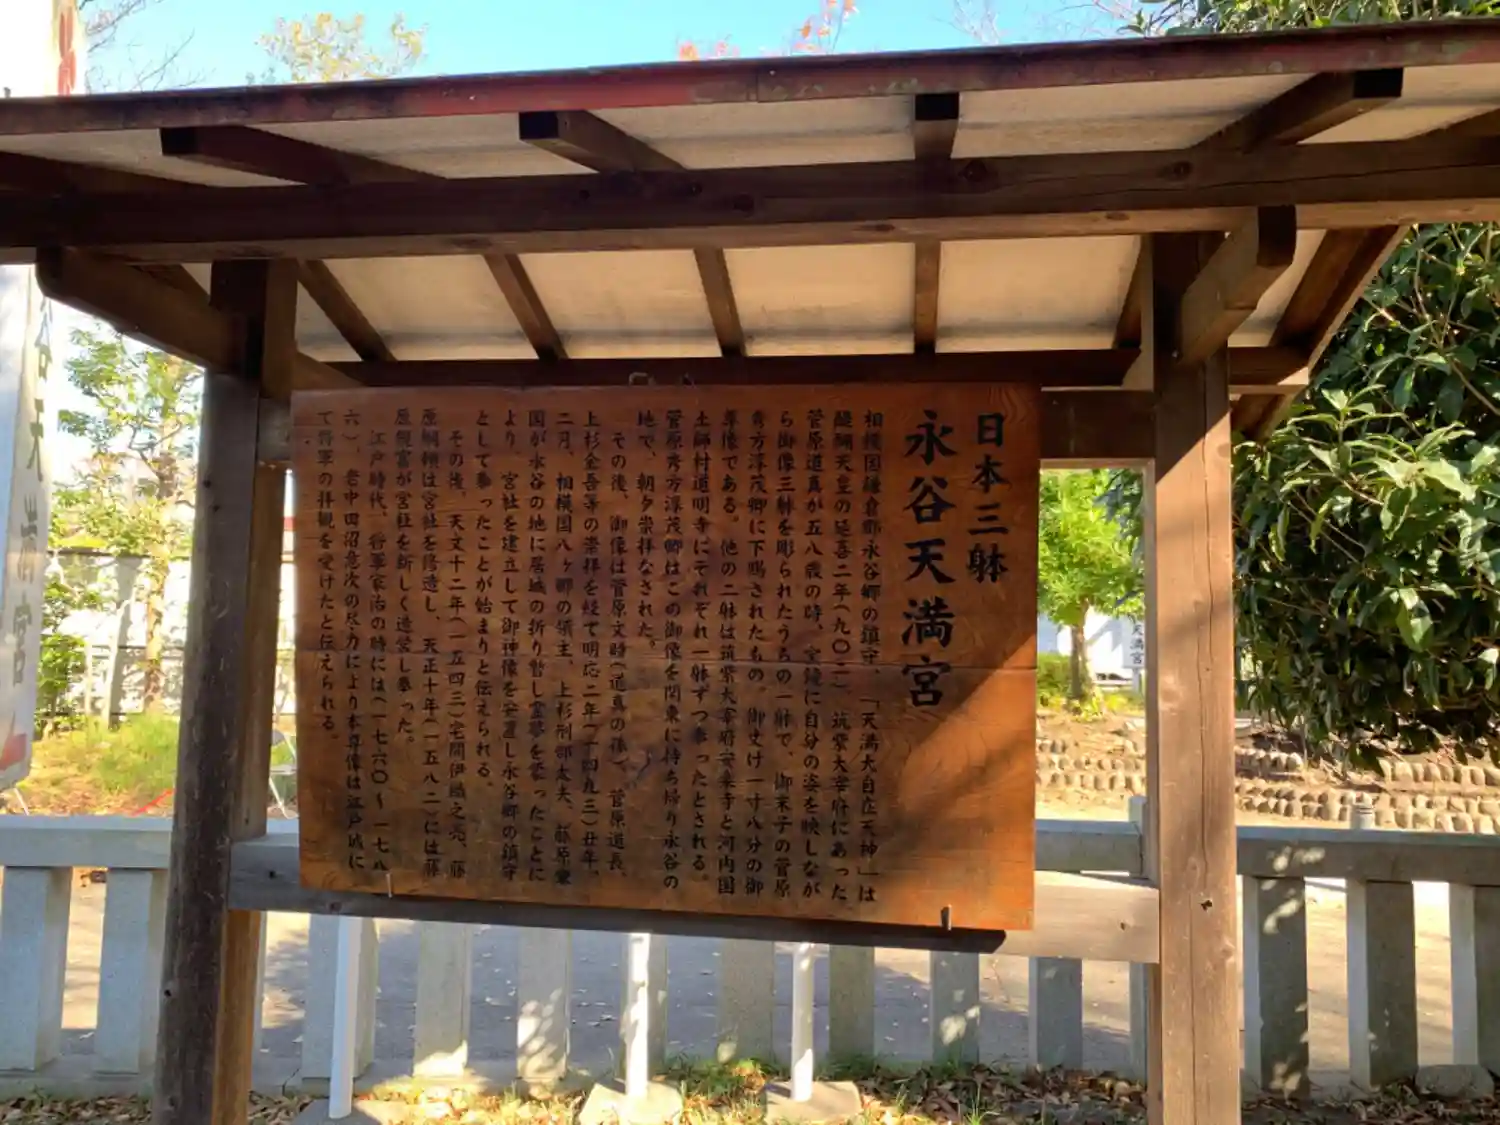 日本三躰
永谷天満宮
相模国鎌倉郡永谷郷の鎮守、「天満大自在天神」は
醍醐天皇の延喜二年(九〇二)、筑紫大宰府にあった
菅原道真が五八歳の時、宝鏡に自分の姿を映しなが
ら御像三躰を彫られたうちの一躰で、御末子の菅原
秀才淳茂卿に下賜されたもの。御丈け一寸八分の御
尊像である。他の二躰は筑紫大宰府安楽寺と河内国
土師村道明寺にそれぞれ一躰ずつ奉ったとされる。
菅原秀才淳茂卿はこの御像を関東に持ち帰り永谷の
地で、朝夕崇拝なされた。
その後、御像は菅原文時(道真の孫)、菅原道長、
上杉金吾等の崇拝を経て明応二年(一四九三)丑年、
二月、相模国八ヶ郷の領主、上杉刑部太夫、藤原乗
国が永谷の地に居城の折り暫し霊夢を蒙ったことに
より、宮社を建立して御神像を安置し永谷郷の鎮守
として奉ったことが始まりと伝えられる。
その後、天文十二年(一五四三)宅間伊織之亮、藤
原綱頼は宮社を修造し、天正十年(一五八二)には藤
原規富が宮社を新しく造営し奉った。
江戸時代、将軍家治の時には(一七六〇〜一七八
六)、老中田沼意次の尽力により本尊像は江戸城に
て将軍の拝観を受けたと伝えられる。
谷天満宮
天満宮